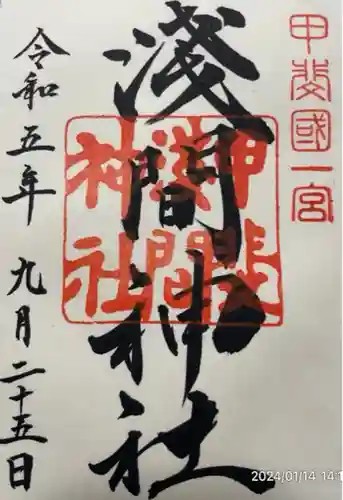 甲斐國一宮
淺間神社
甲斐
淺間
神社
令和五年九月二十五日
2024/01/14 14:1